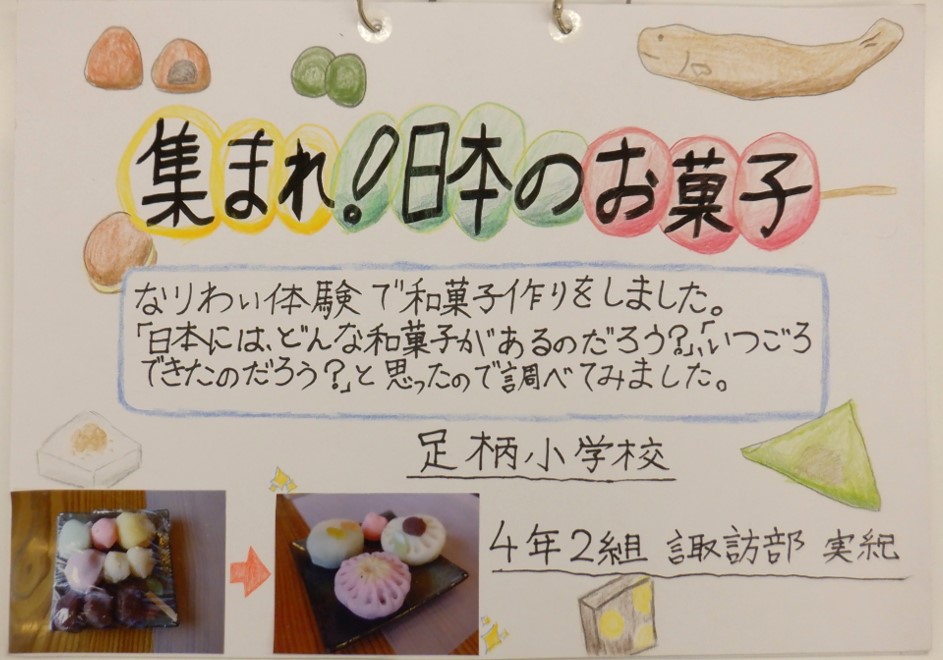 集まれ!日本のお菓子
なりわい体験で和菓子作りをしました。
「日本には、どんな和菓子があるのだろう?」、「いつごろ
できたのだろう?」と思ったので調べてみました。
足柄小学校
4年2組 諏訪部 実紀